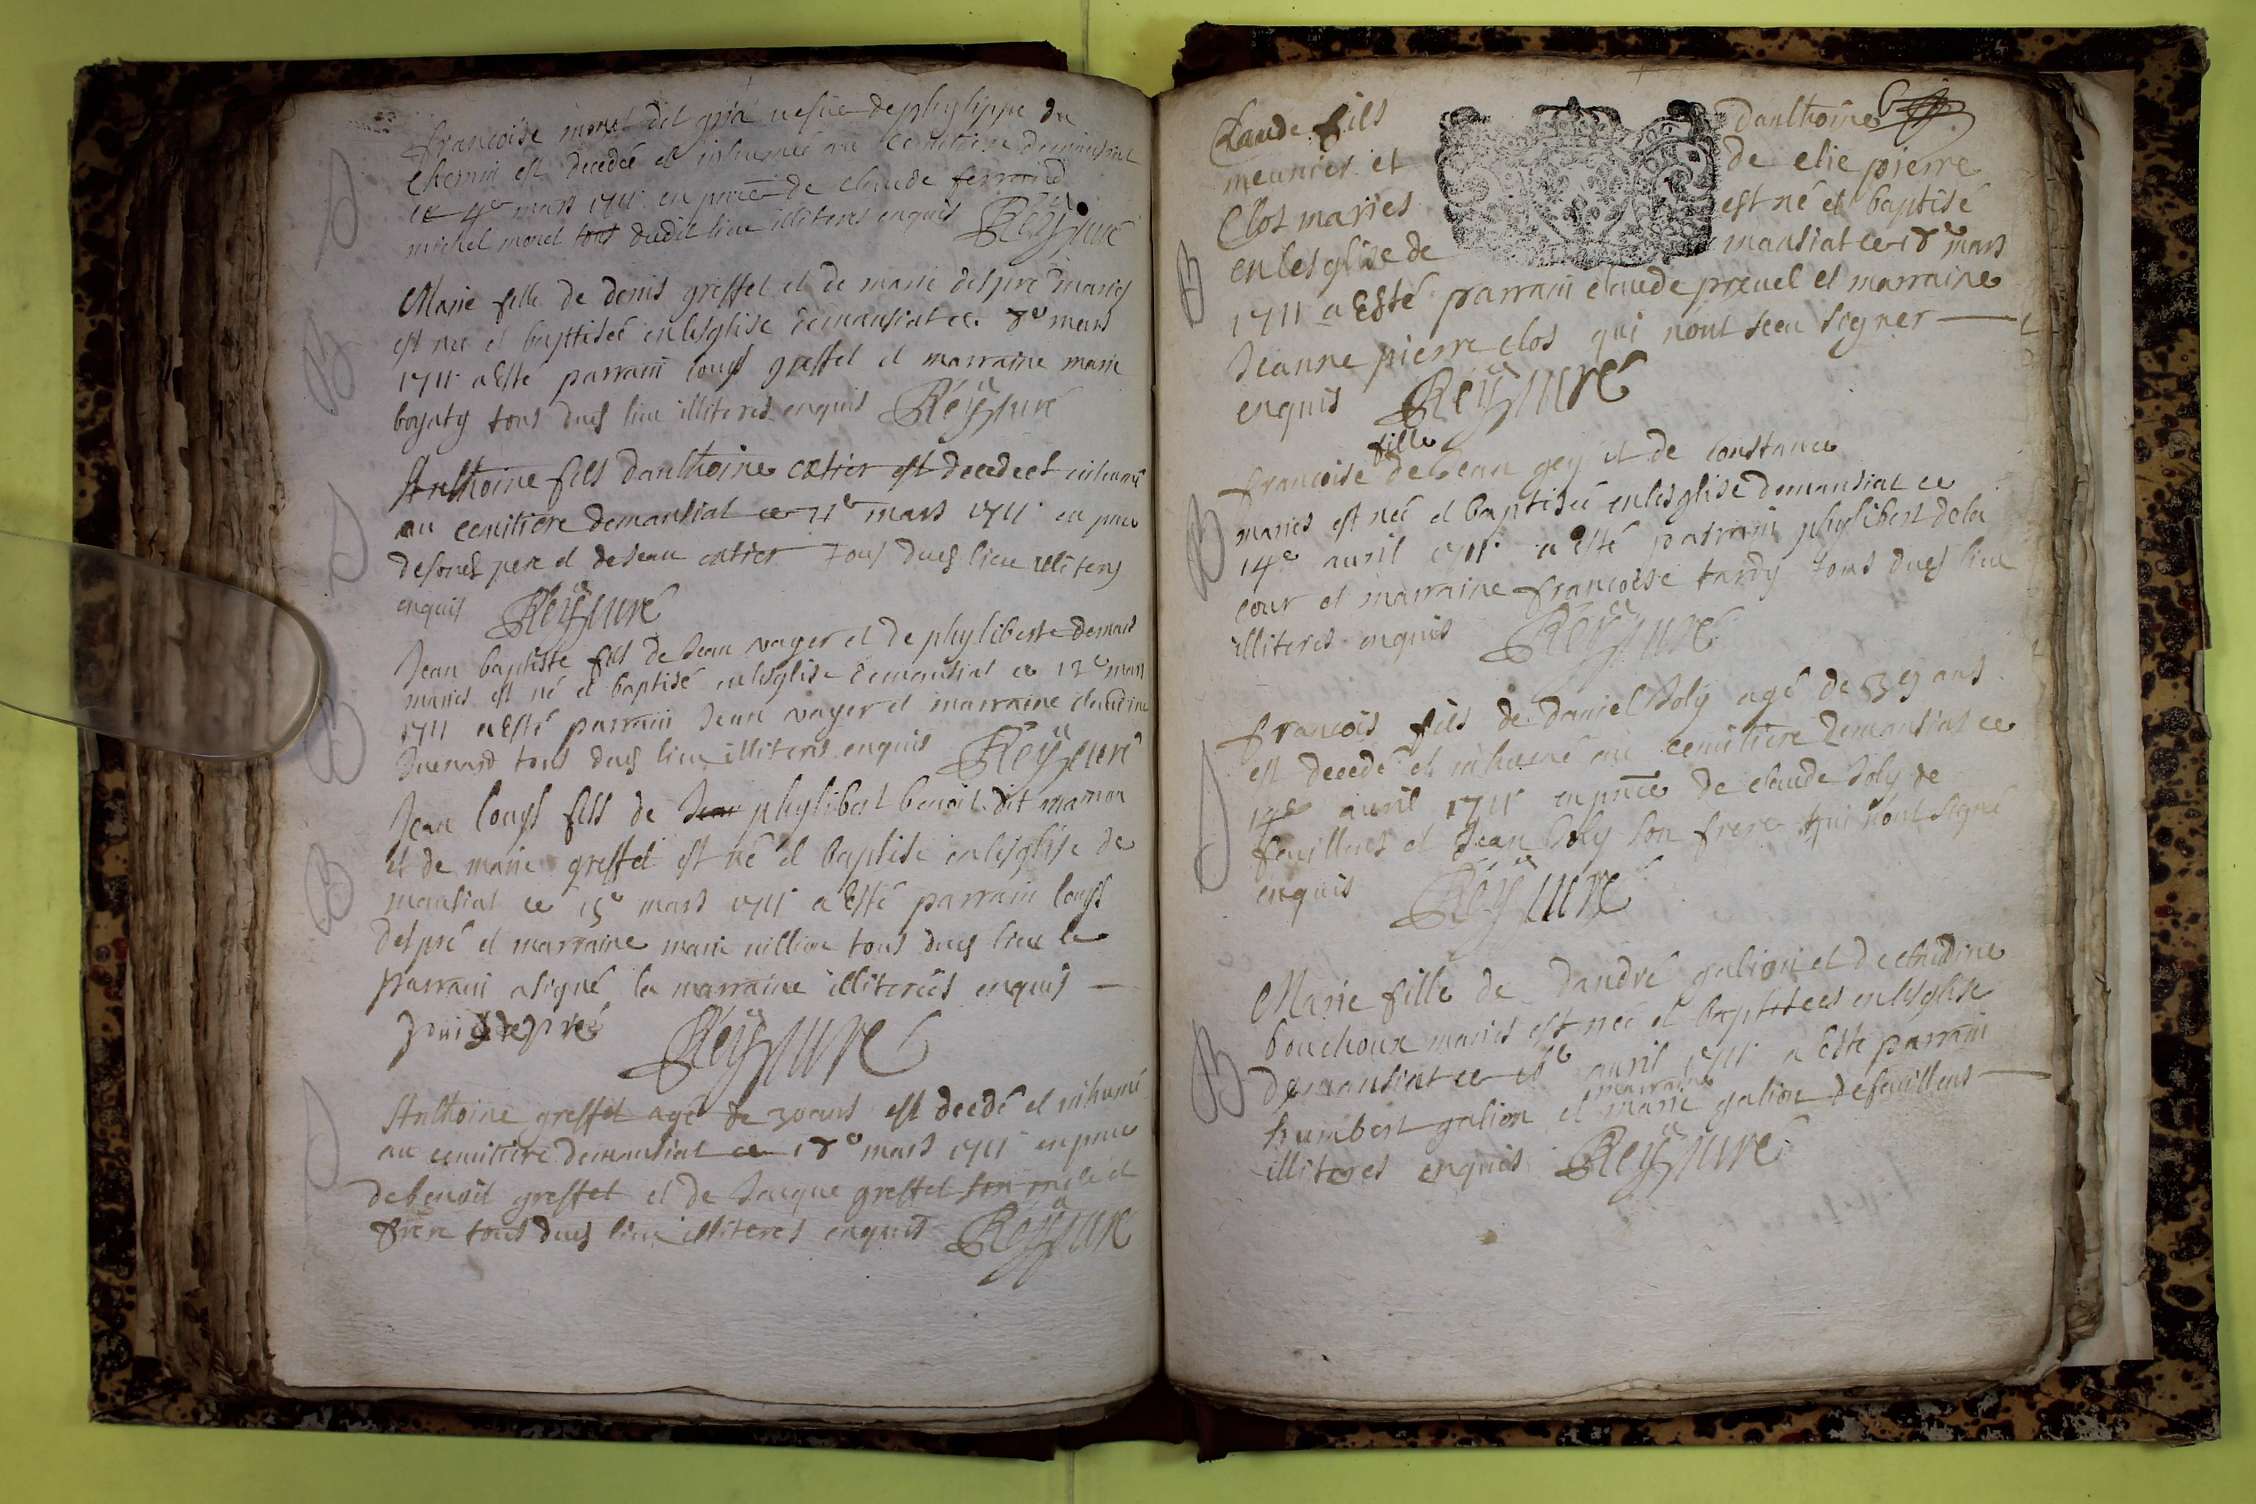 françoise morel dit gria vefue de phylippe du
chemin est decedée et inhumée au cemitiere demansiat
ce 4e mars 1711 en pnce de claude ferrand
michel morel tous dudit lieu illiteres enquis Reÿ curé
B
Marie fille de denis greffet et de marie despré maries
est née et baptisée en lesglise demansiat ce 8e mars
1711 a esté parrain louys greffet et marraine marie
tous dues lieu illiteres enquis Reÿ curé
Anthoine fils danthoine catier est decedé et inhumé
au cemitiere demansiat ce mars 1711 en pnce
de sond pere et de Jean catier tous dues lieu illiteres
enquis Reÿ curé
B
Jean baptiste fils de Jean vager et de phyliberte demais
maries est né et baptisé en lesglise demansiat ce 12e mars
1711 a esté parrain Jean vager et marraine claudine
tous dues lieu illiteres enquis Reÿ curé
B
Jean louys fils de Jean phylibert benoit dit mamon
et de marie greffet est né et baptisé en lesglise de
mansiat ce 15e mars 1711 a esté parrain louys
despré et marraine marie tous dues lieu le
parrain a signé la marraine illiterées enquis
despré Reÿ curé
Anthoine greffet agé de 30 ans est decedé et inhumé
au cemitiere demansiat ce 18e mars 1711 en pnce
de benoit greffet et de Jacque greffet son et
frere tous dues lieu illiteres enquis Reÿ curé
B
Claude fils danthoine
meunier et de elie pierre
Clos maries est né et baptisé
en lesglise de mansiat ce 18e mars
1711 a esté parrain claude prevel et marraine
Jeanne pierre clos qui nont sceu signer
enquis Reÿ curé
B
fille
françoise de Jean gey et de constance
maries est née et baptisée en lesglise demansiat ce
14e avril 1711 a esté parrain phylibert dela
cour et marraine françoise tardy tous dues lieu
illiteres enquis Reÿ curé
françois fils de daniel Joly agé de ans
est decedé et inhumé au cemitiere demansiat ce
14e avril 1711 en pnce de claude Joly de
feuillens et Jean Joly son frere qui nont signé
enquis Reÿ curé
B
Marie fille de dandré galion et de claudine
bouchoux maries est née et baptisées en lesglise
demansiat ce avril 1711 a esté parrain
marraine
humbert galion et marie galion de feuillens
illiteres enquis Reÿ curé